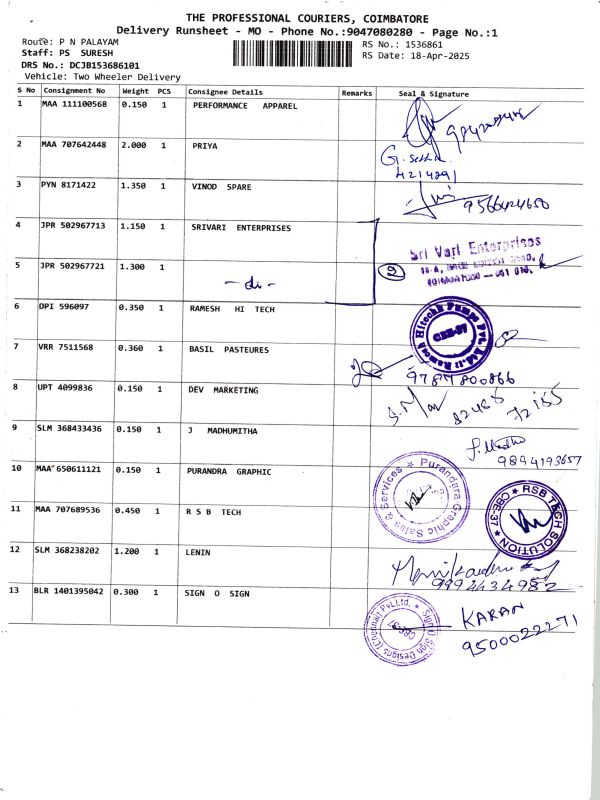 THE PROFESSIONAL COURIERS, COIMBATORE
Delivery Runsheet - MO - Phone No.:9047080280 - Page No.:1
Route: P N PALAYAM
Staff: PS SURESH
DRS No.: DCJB153686101
Vehicle: Two Wheeler Delivery
RS No.: 1536861
RS Date: 18-Apr-2025
S No Consignment No Weight PCS Consignee Details Remarks Seal & Signature
1 MAA 111100568 0.150 1 PERFORMANCE APPAREL
2 MAA 707642448 2.000 1 PRIYA
4214291
3 PYN 8171422 1.350 1 VINOD SPARE
9566424650
4 JPR 502967713 1.150 1 SRIVARI ENTERPRISES
Sri Vari Enterprises
5 JPR 502967721 1.300 1
- di -
2
6 DPI 596097 0.350 1 RAMESH HI TECH
CBE-37
7 VRR 7511568 0.360 1 BASIL PASTEURES
9787800866
8 UPT 4099836 0.150 1 DEV MARKETING
82488 72155
9 SLM 368433436 0.150 1 J MADHUMITHA
9894193657
10 MAA 650611121 0.150 1 PURANDRA GRAPHIC
Purandara Graphic Sales & Services
11 MAA 707689536 0.450 1 R S B TECH
RSB TECH SOLUTION CBE-37
12 SLM 368238202 1.200 1 LENIN
9994434982
13 BLR 1401395042 0.300 1 SIGN O SIGN
Sign O Sign Designs (Chennai) Pvt.Ltd.
KARAN
9500022271